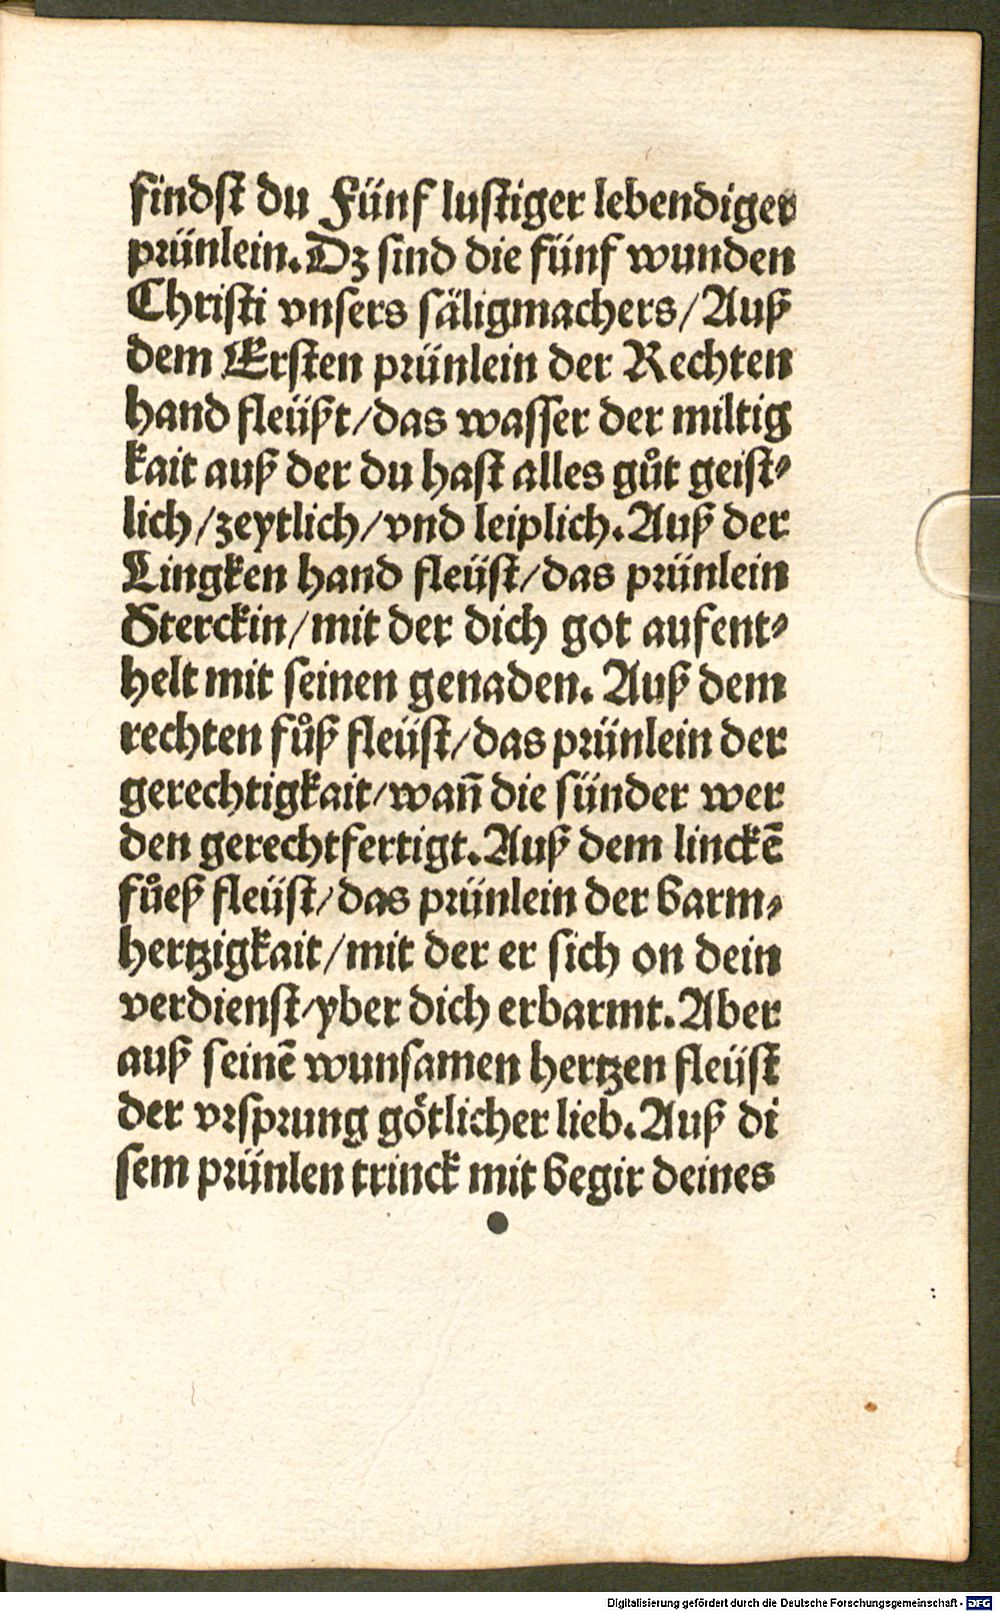 findst du Fünf lustiger lebendiger
prünlein. Dz sind die fünf wunden
Christi vnsers säligmachers / Auß
dem Ersten prünlein der Rechten
hand fleüßt / das wasser der miltig
kait auß der du hast alles gůt geist⸗
lich / zeytlich / vnd leiplich. Auß der
Lingken hand fleüst / das prünlein
Sterckin / mit der dich got aufent⸗
helt mit seinen genaden. Auß dem
rechten fůß fleüst / das prünlein der
gerechtigkait / wañ die sünder wer
den gerechtfertigt. Auß dem linckē
fůeß fleüst / das prünlein der barm⸗
hertzigkait / mit der er sich on dein
verdienst / yber dich erbarmt. Aber
auß seinē wunsamen hertzen fleüst
der vrsprung götlicher lieb. Auß di
sem prünlen trinck mit begir deines
Digitalisierung gefördert durch die Deutsche Forschungsgemeinschaft - DFG